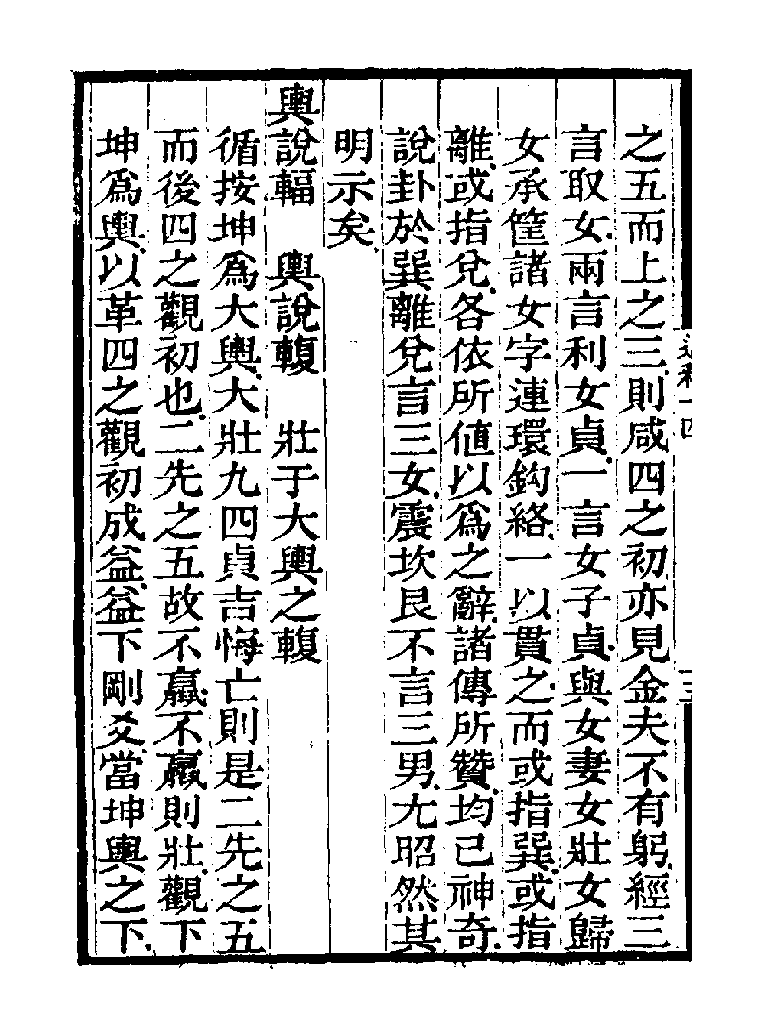 之五而上之三則咸四之初亦見金夫不有躬經三
言取女兩言利女貞一言女子貞與女妻女壯女歸
女承筐諸女字連環鉤絡一以貫之而或指巽或指
離或指兌各依所値以爲之辭諸傳所贊均已神奇
說卦於巽離兌言三女震坎艮不言三男尤昭然其
明示矣
輿說輻　輿說輹　壯于大輿之輹
循按坤爲大輿大壯九四貞吉悔亡則是二先之五
而後四之觀初也二先之五故不羸不羸則壯觀下
坤爲輿以革四之觀初成益益下剛爻當坤輿之下